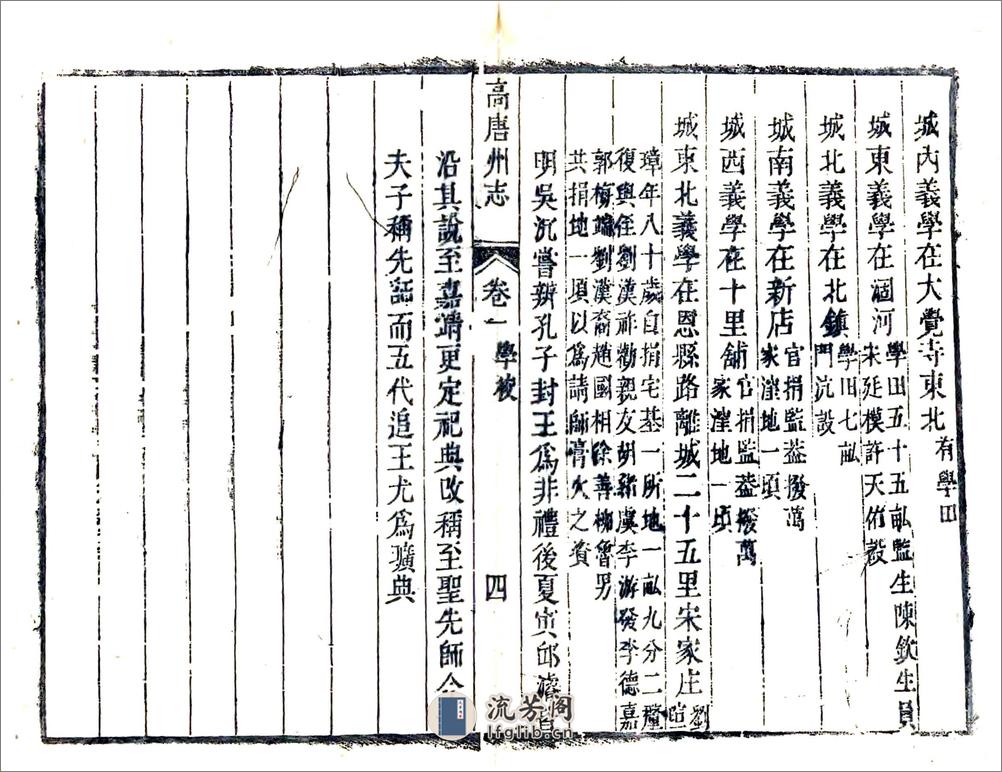 城內義學在大覺寺東北有學田
城東義學在涸河學田五十五畝監生陳欽生員
宋廷模許天佑設
城北義學在北鎮學田七畝
門沆設
城南義學在新店官捐監葢撥萬
家漥地一頃
城西義學在十里舖官捐監葢撥萬
家漥地一頃
城東北義學在恩縣路離城二十五里宋家庄劉
瑄
璋年八十歲自捐宅基一所地一畝九分二釐
復與侄劉漢祚勸親友胡孫虞李游發李德嘉
郭梅端劉漢裔趙國相徐善柳魯男
共捐地一頃以為請師膏火之資
明吳沉嘗辨孔子封王為非禮後夏寅邱濬
高唐州志
卷一
學校
四
沿其說至嘉靖更定祀典改稱至聖先師
夫子稱先師而五代追王尤為曠典
流芳阁
lfglib.cn